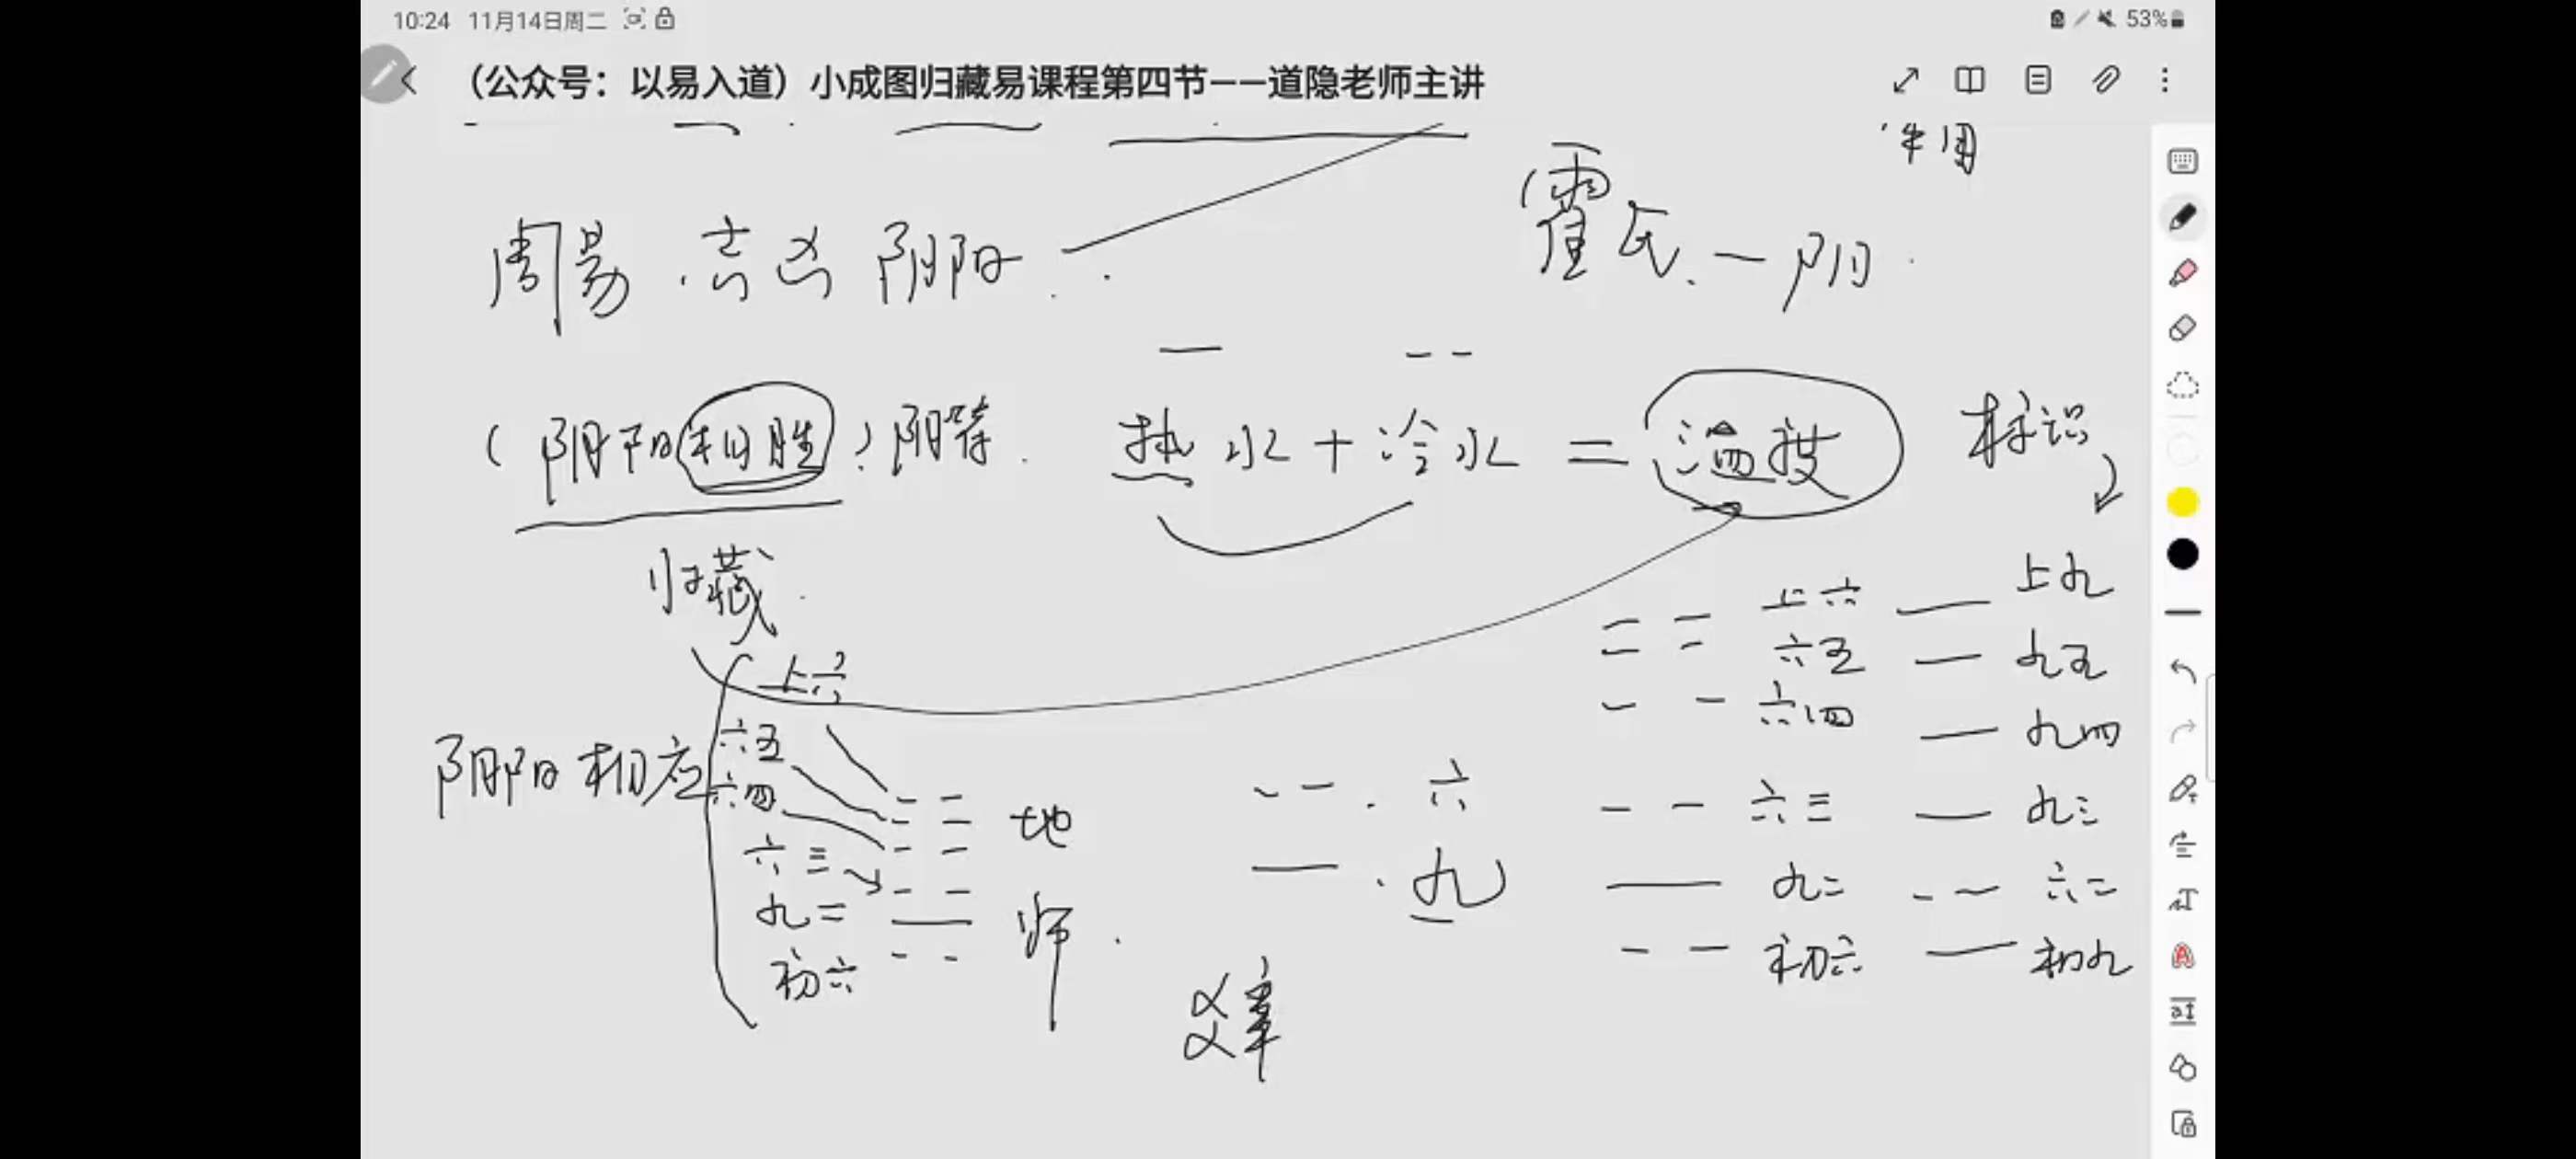 10:24 11月14日周二 53%
（公众号：以易入道）小成图归藏易课程第四节——道隐老师主讲
作用
周易 . 吉凶 阴阳
霍氏 . 一阴
（阴阳相胜）阴符
热水 + 冷水 = 温度
标识
归藏
上六 上九
六五 九五
六四 九四
六三 九三
九二 六二
初六 初九
阴阳相应
上六
六五
六四
六三
九二
初六
地
师
六
九
爻辞